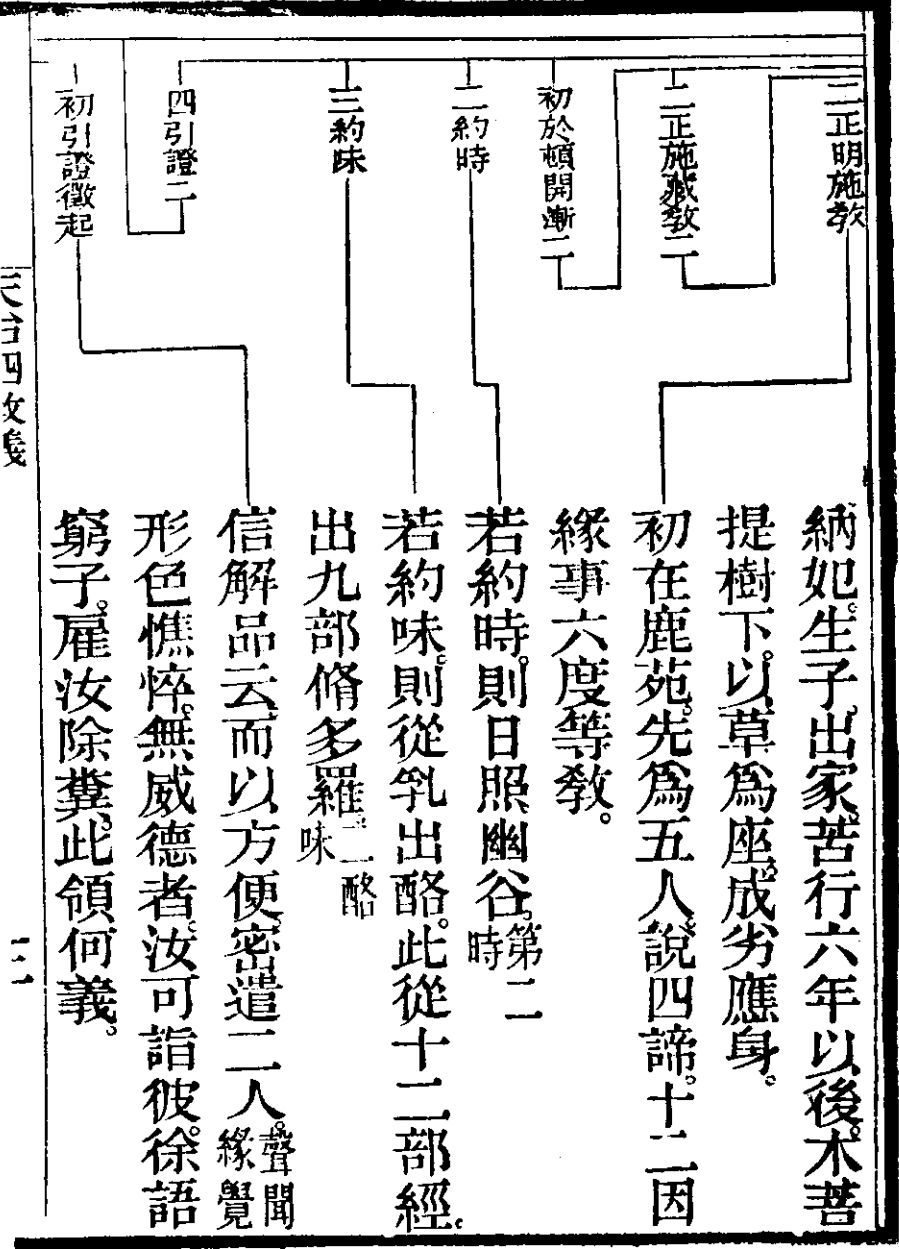 二正明施教
二正施藏教二
初於頓開漸二
二約時
三約味
四引證二
初引證徵起
納妃。生子。出家。苦行六年以後。木菩
提樹下。以草爲座。成劣應身。
初在鹿苑。先爲五人。說四諦。十二因
緣事六度等教。
若約時。則日照幽谷。第二時
若約味。則從乳出酪。此從十二部經。
出九部脩多羅。二酪味
信解品云。而以方便。密遣二人。聲聞緣覺
形色憔悴。無威德者。汝可詣彼。徐語
窮子。雇汝除糞。此領何義。
天台四教儀